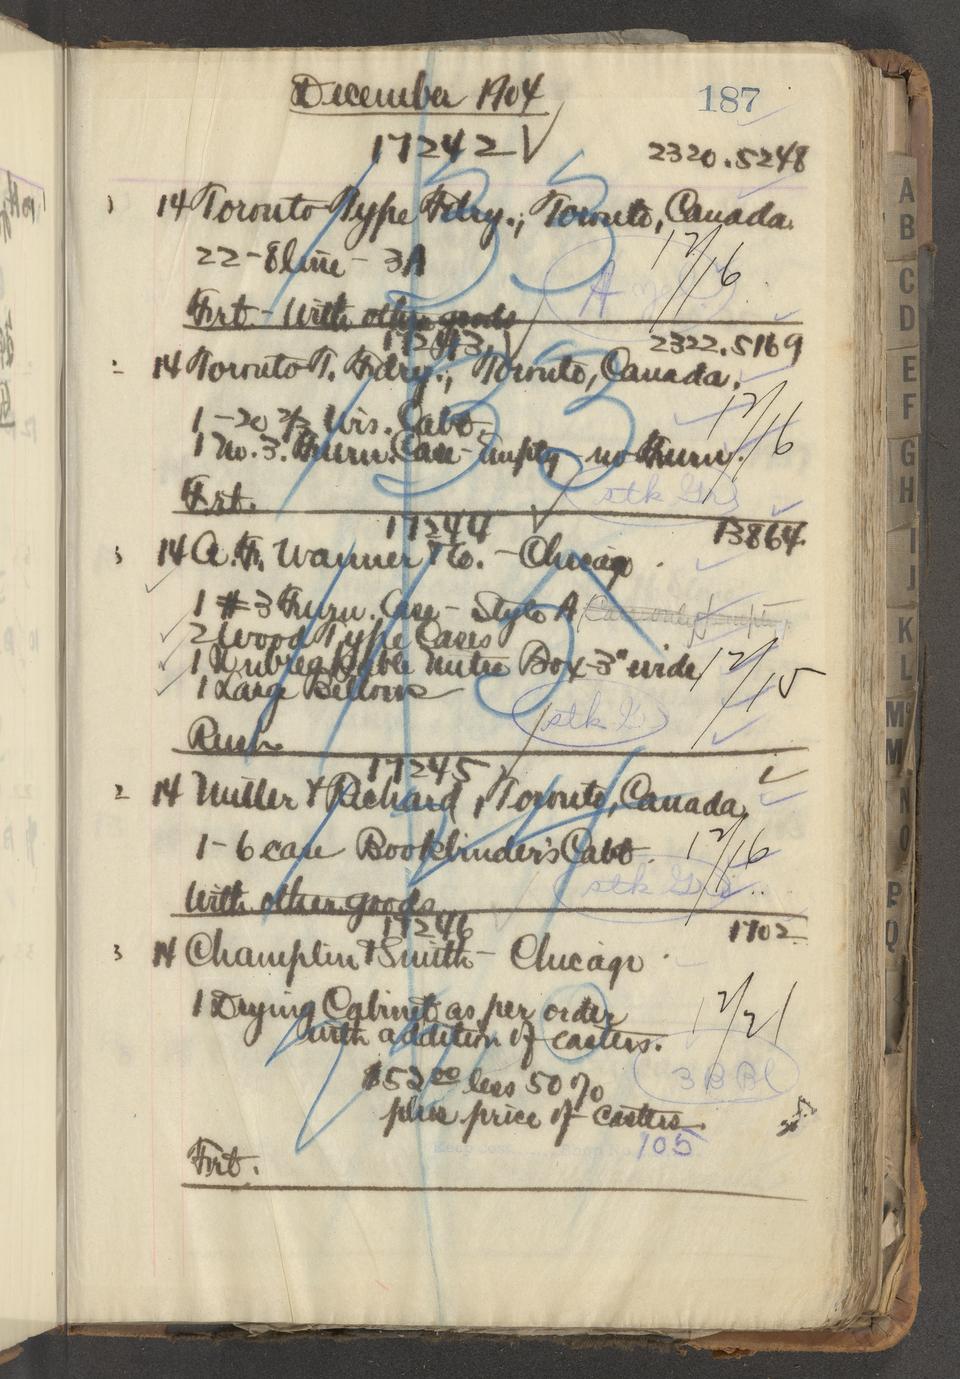 December 1904
187
17242
2320.5248
1 14 Toronto Type Fdry., Toronto, Canada.
22-8 line - 3A
12/16
Frt - With other goods
17243
2322.5169
2 14 Toronto T. Fdry., Toronto, Canada.
1 - 20 2/3 Wis. Cabt.
12/16
1 No. 3. Furn. Case - Empty - no Furn.
stk Grs
Frt.
17244
13864
3 14 A. F. Wanner & Co. - Chicago
1 #3 Furn. Case - Style A Case only
2 Wood Type Cases
1 Unbreakable Mitre Box - 3" wide
12/15
1 Large Bellows
stk
Rush
17245
2 14 Miller & Richard, Toronto, Canada
1 - 6 case Bookbinder's Cabt.
12/16
stk Grs
With other goods
17246
1702
3 14 Champlin & Smith - Chicago
1 Drying Cabinet as per order
12/21
with addition of casters.
3 B Bl
$52.00 less 50%
plus price of casters
105
Frt.
A
B
C
D
E
F
G
H
I
J
K
L
M
M
N
O
P
Q